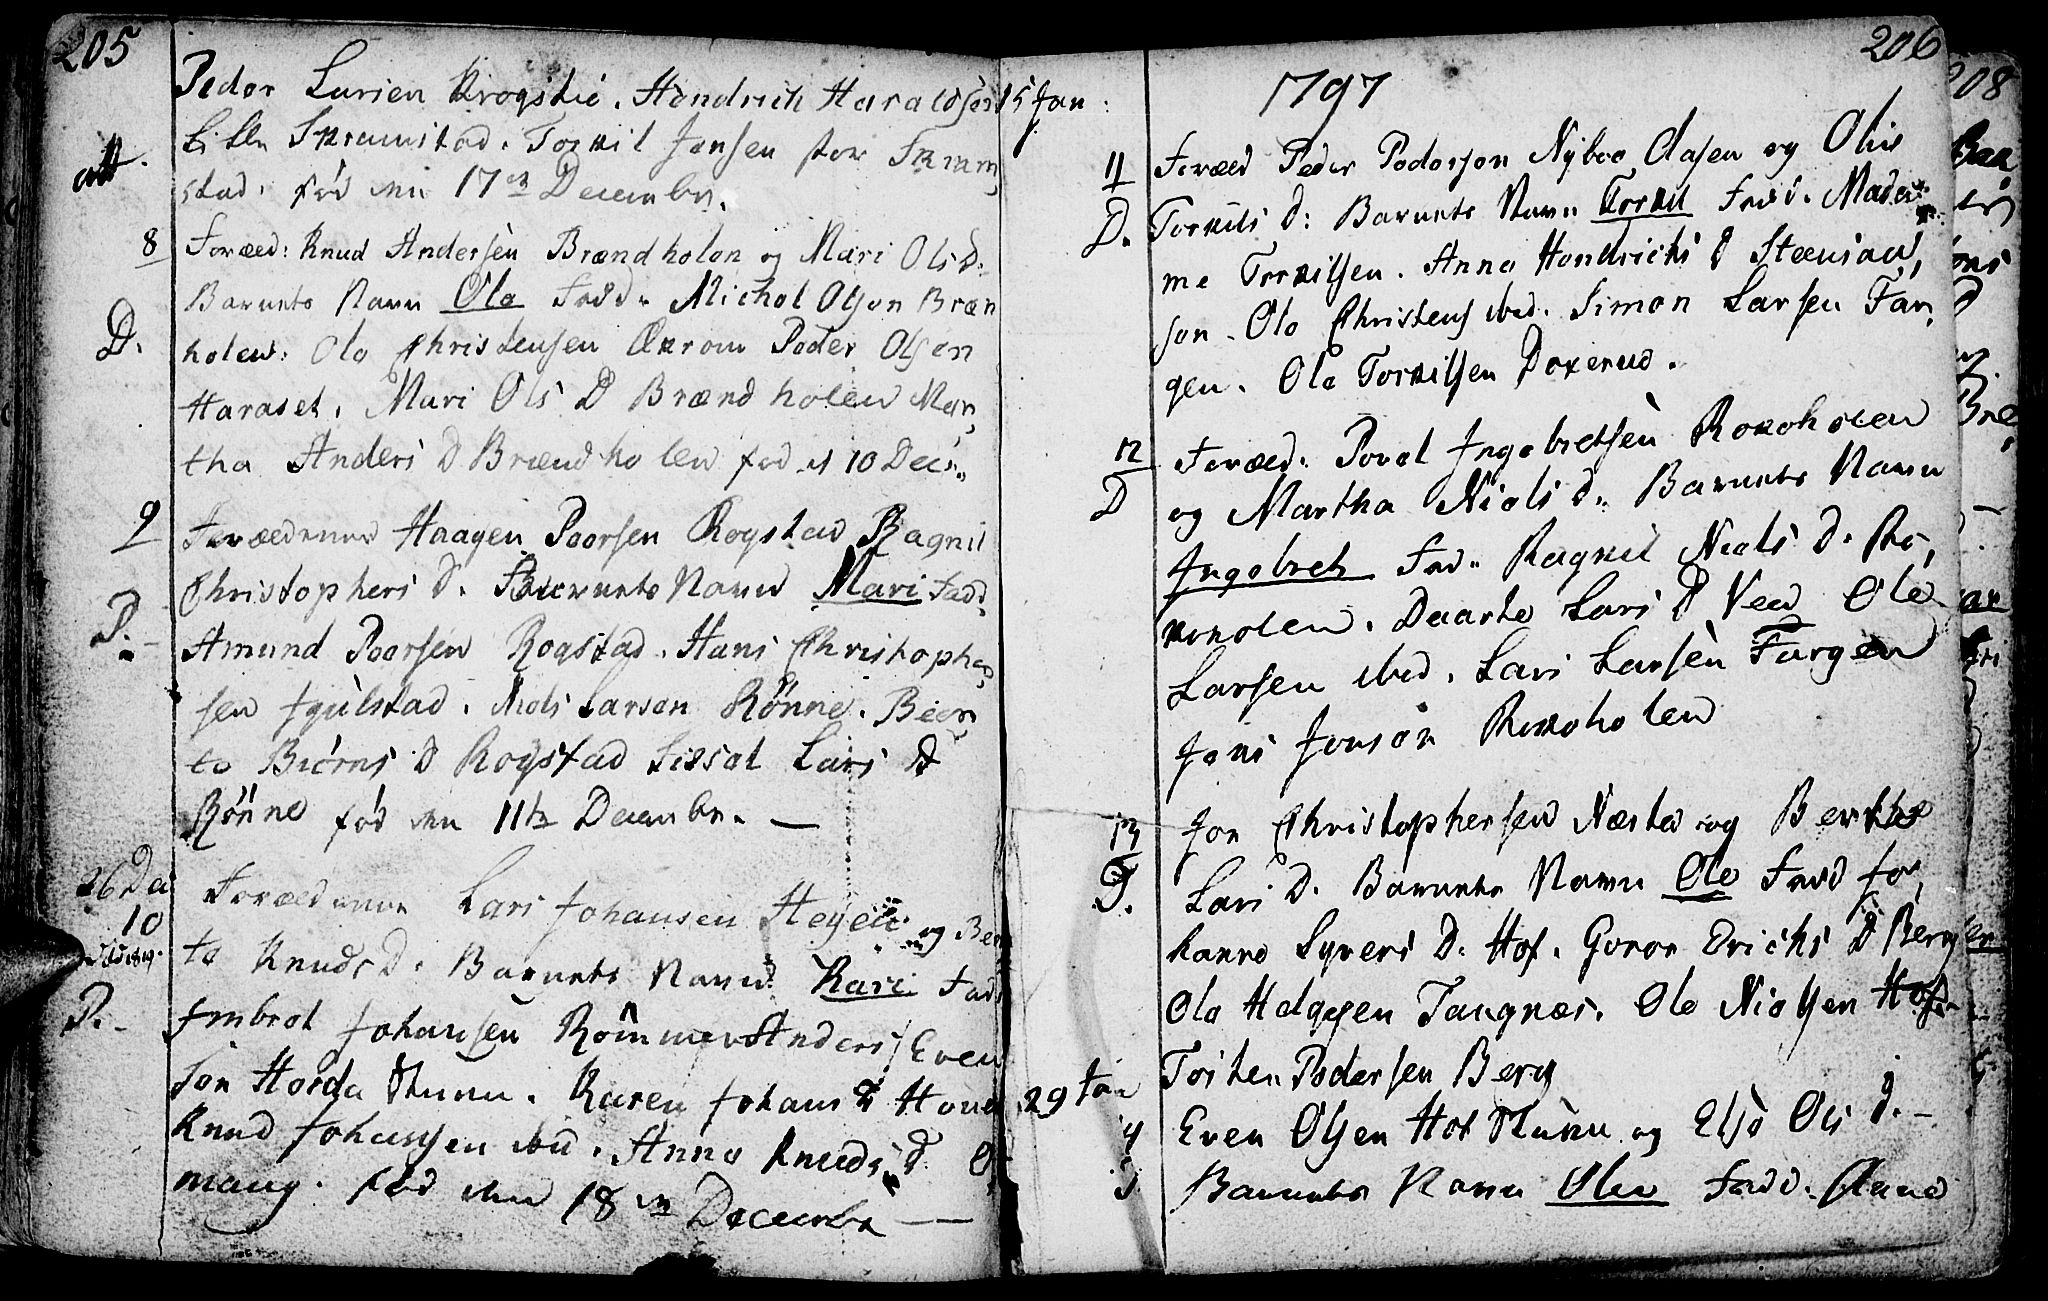 205
Peder Larsen Krogstie. Hendrich Haraldsen
Lille Skramstad. Torkil Jensen stor Skram,
stad. fød den 17de December.
8
Foræld: Knud Andersen Brændholen og Mari Ols D.
D.
Barnets Navn Ole Fadd. Michel Olsen Bræn
holen: Ole Christensen Økrom Peder Olsen
Haraset. Mari Ols D Brændholen Mar,
tha Anders D Brændholen fød d 10 Dec:
9
Forældrene Haagen Poersen Rogstad Ragnil
D.
Christophers D. Barnets Navn Mari Fadd.
Amund Poersen Rogstad. Hans Christopher,
sen Igulstad. Niels Larsen Rönne. Beer,
te Biörns D Rogstad Sissel Lars D
Rönne fød den 11te December. —
26 Da
10
Forældrene Lars Johansen Hegeli og Ber
D.
te Knuds D. Barnets Navn Kari Fadd
Imbret Johansen Römmen Anders Even
sen Horda Karen Johans D Horda
Knud Johansen ibid. Anne Knuds D
mang. fød den 18de December —
206
1797
15 Jan:
11
Foræld Peder Pedersen Nyboe Aasen og Olis
D.
Torkils D: Barnets Navn Torkil Fadd. Mada
me Torkilsen. Anne Hendrichs D Steensaa,
sen. Ole Christens ibid. Simon Larsen Far,
gen. Ole Torkilsen Doxerud.
12
Foræld. Povel Ingebretsen Rokoholen
D
og Martha Niels D. Barnets Navn
Ingebret Fad. Ragnil Niels D. Ro,
koholen. Daarte Lars D Veen Ole
Larsen ibid. Lars Larsen Fargen
Jens Jensen Rokoholen
13
Jon Christophersen Næsten og Berthe
D.
Lars D. Barnets Navn Ole Fadd Jo,
hanne Syvers D. Hof. Goror Erichs D Berg
Ole Helgesen Tangnæs. Ole Nielsen Hof
Tosten Pedersen Berg
29 Jan
Even Olsen Hof og Else Ols D. —
Barnets Navn Olea Fadd. Anne
208